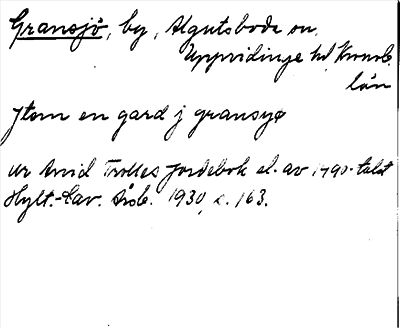 Gransjö, by, Algutsboda sn,
Uppvidinge hd, Kronob.
län
Jtem en gard j gransyø
ur Arvid Trolles jordebok sl. av 1490-talet
Hylt.-Cav. Årsb. 1930, s. 163.